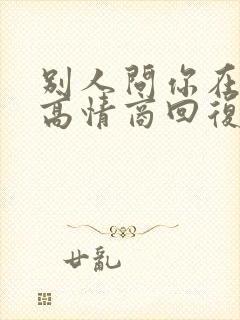 别人問你在
高情商回復
廿亂